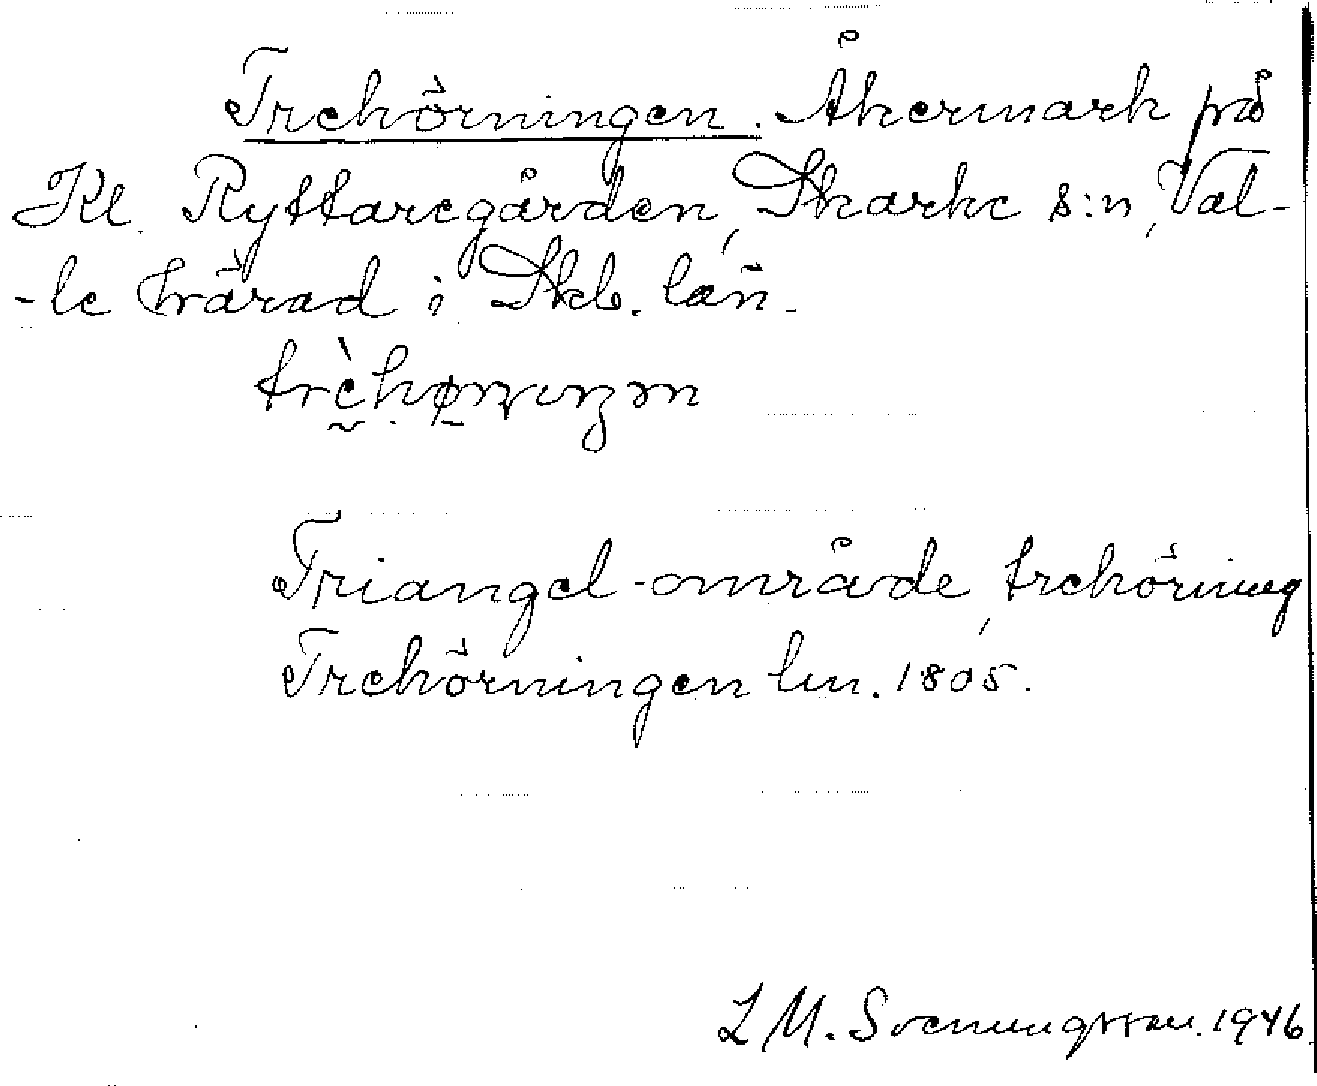 Trehörningen. Åkermark på
Kl. Ryttaregården, Skarke s:n, Val-
-le härad i Skb. län.
Triangel-område, trehörning
Trehörningen lm. 1805.
L M. Svenungsson. 1946